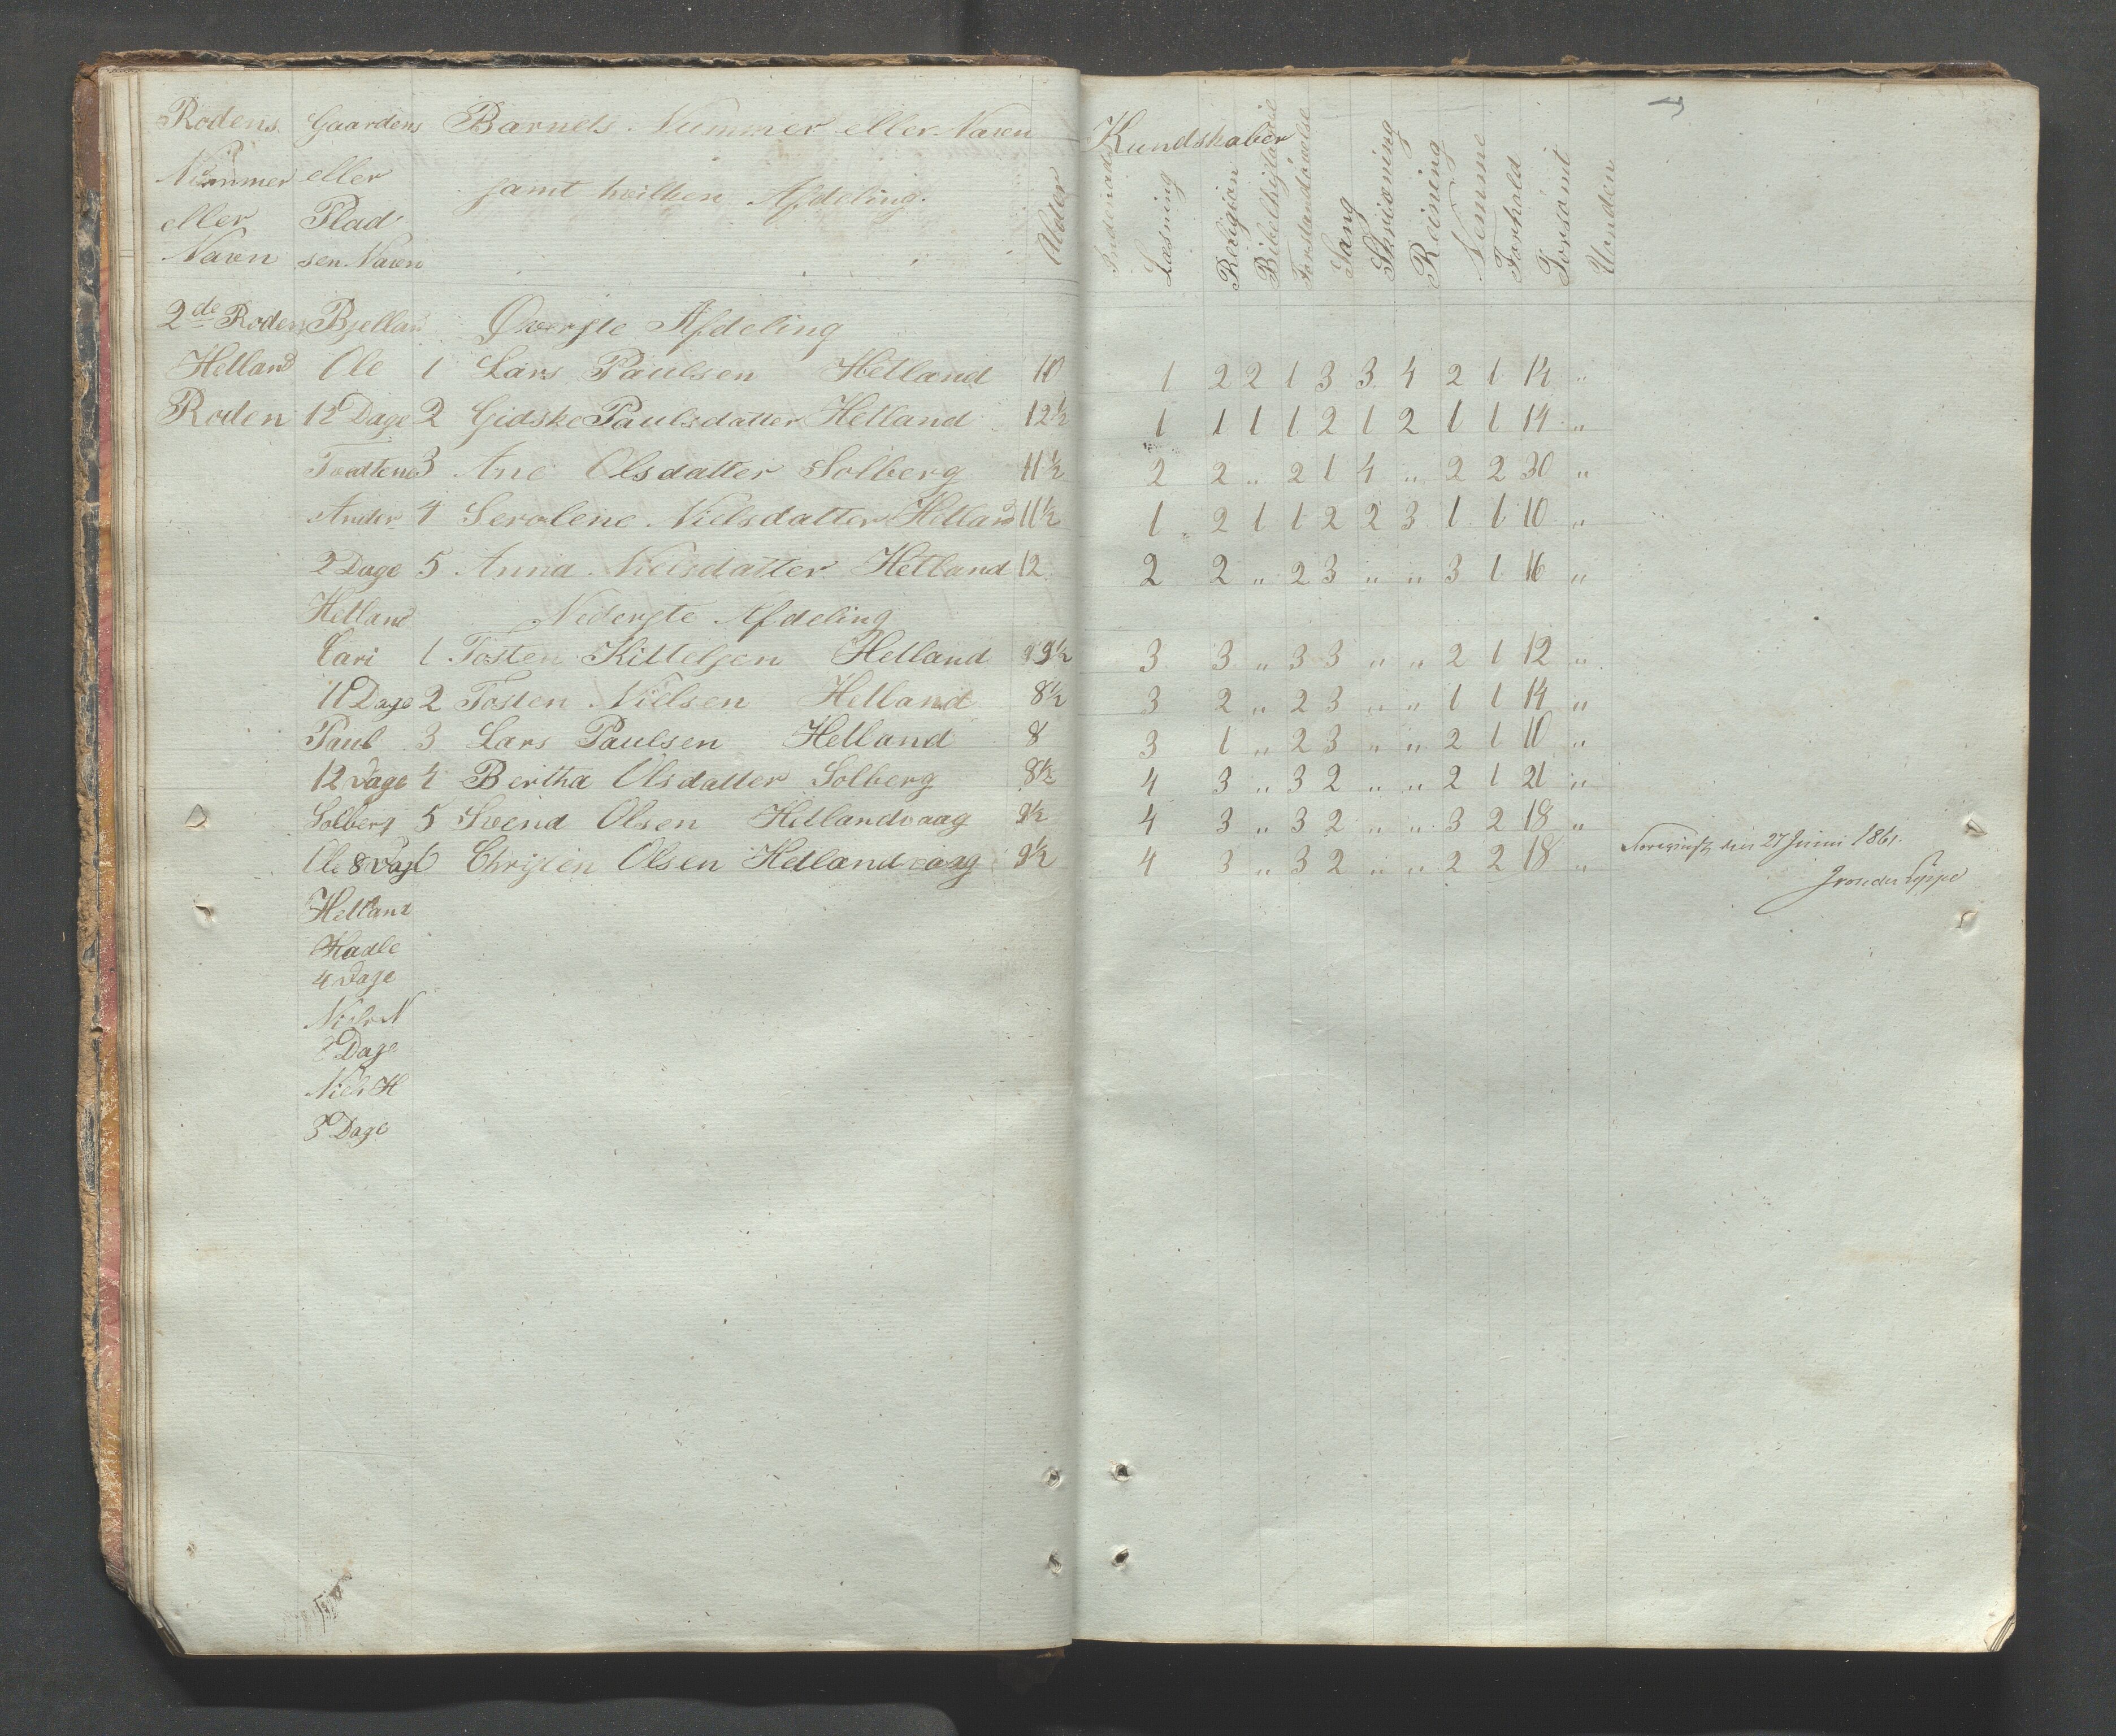 Rodens Gaardens Barnets Nummer eller Navn
Nummer eller samt hvilken Afdeling.
eller Plad
Navn sen Navn
Alder
Kundskaber
Læsning
Religion
Bibelhistorie
Forstandsøvelse
Sang
Skrivning
Reining
Nemme
Forhold
Forsømt
Vonden
2de Roden Bjelland Øverste Afdeling
Helland Ole 1 Lars Paulsen Hetland 10 1 2 2 1 3 3 4 2 1 14 "
Roden 12 Dage 2 Gidske Paulsdatter Hetland 12½ 1 1 1 1 2 1 2 1 1 14 "
Tvedtene 3 Ane Olsdatter Solberg 11½ 2 2 " 2 1 4 " 2 2 30 "
Ander 4 Serolene Nielsdatter Hetland 11½ 1 2 1 1 2 2 3 1 1 10 "
2 Dage 5 Anna Nielsdatter Hetland 12 2 2 " 2 3 " " 3 1 16 "
Hetland Nederste Afdeling
Cari 1 Tosten Kittelsen Hetland 9½ 3 3 " 3 3 " " 2 1 12 "
11 Dage 2 Tosten Nielsen Hetland 8½ 3 2 " 2 3 " " 1 1 14 "
Paul 3 Lars Paulsen Hetland 8 3 1 " 2 3 " " 2 1 10 "
12 Dage 4 Bertha Olsdatter Solberg 8½ 4 3 " 3 2 " " 2 1 21 "
Solberg 5 Svend Olsen Hetlandvaag 9½ 4 3 " 3 2 " " 3 2 18 "
Ole 8 Dage 6 Christen Olsen Hetlandvaag 9½ 4 3 " 3 2 " " 2 2 18 "
den 27 Juni 1861.
Hetland
Hadle
4 Dage
Niels N
2 Dage
Niels H
3 Dage